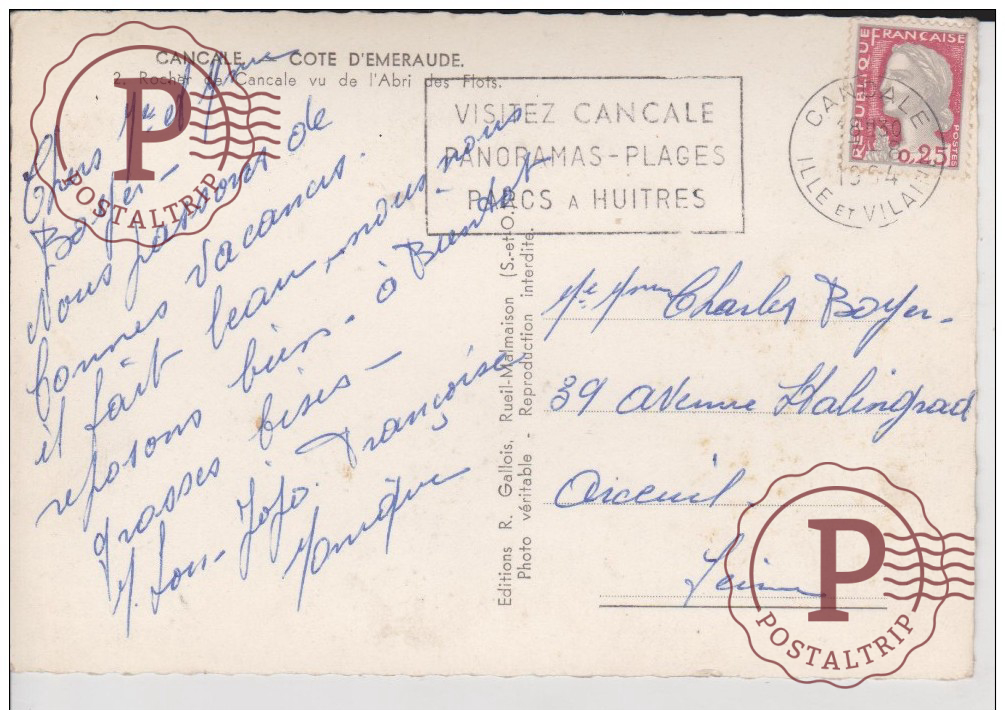 CANCALE. - COTE D'EMERAUDE.
2. Rocher de Cancale vu de l'Abri des Flots.
VISITEZ CANCALE
PANORAMAS-PLAGES
PARCS A HUITRES
REPUBLIQUE FRANÇAISE
0,25
POSTES
CANCALE
18H30
1964
ILLE ET VILAINE
Chers Mr et Mme
Boyer -
Nous passons de
bonnes vacances.
il fait beau, nous nous
reposons bien - à Bientôt
grosses bises -
Jojo. Françoise
Monique
Editions R. Gallois, Rueil-Malmaison (S.-et-O.)
Photo véritable - Reproduction interdite.
Mr Mme Charles Boyer -
39 avenue Stalingrad
Arceuil
Seine
P
POSTALTRIP
P
POSTALTRIP